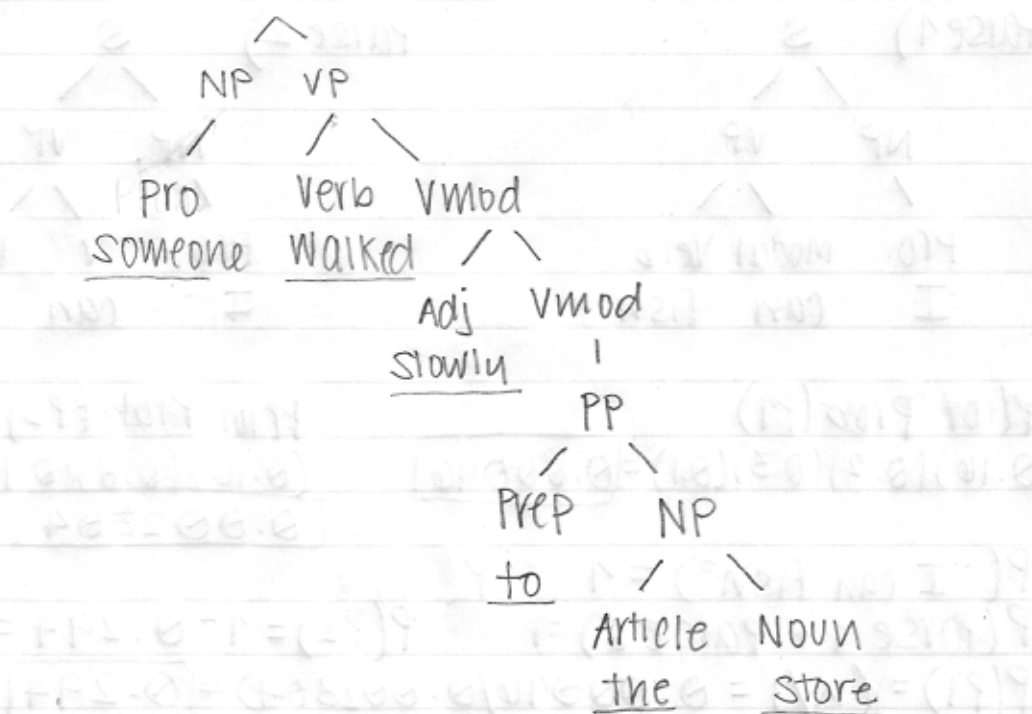 NP VP
Pro Verb Vmod
someone Walked
Adj Vmod
slowly
PP
Prep NP
to
Article Noun
the store